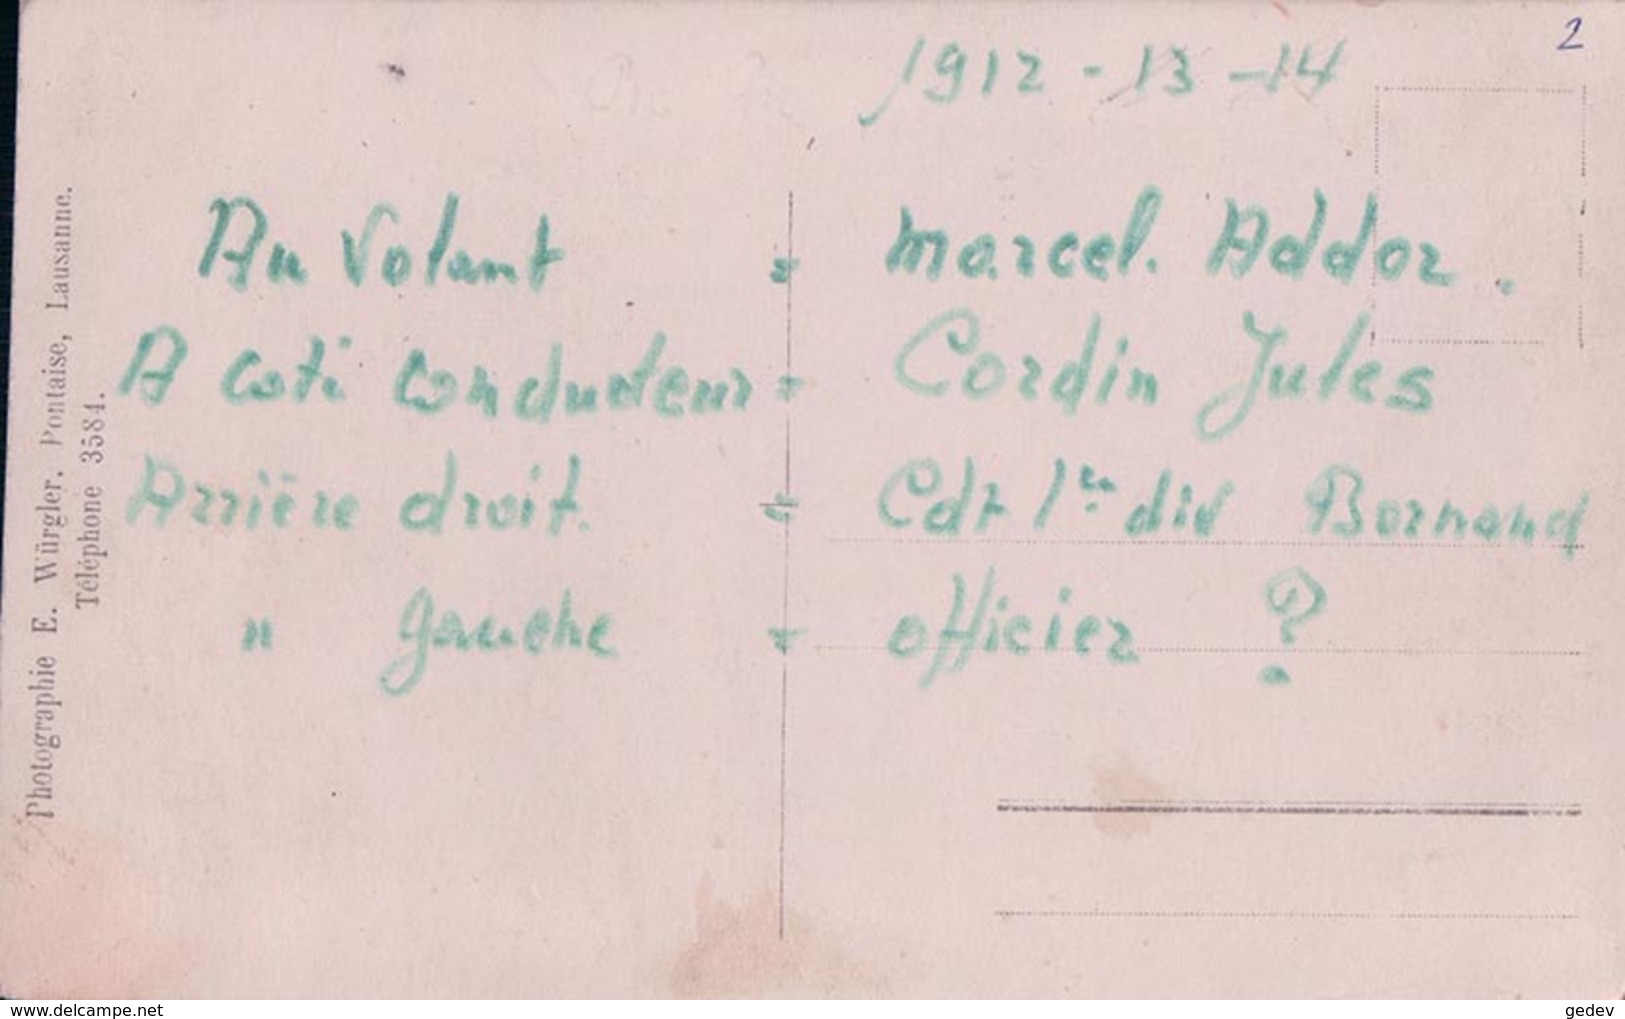 2
1912 - 13 - 14
Au Volant = Marcel. Addor.
A coti conducteur = Cordin Jules
Arrière droit. = Cdt 1re div Bornand
" gauche = officier ?
Photographie E. Würgler, Pontaise, Lausanne.
Téléphone 3584.
www.delcampe.net
gedev